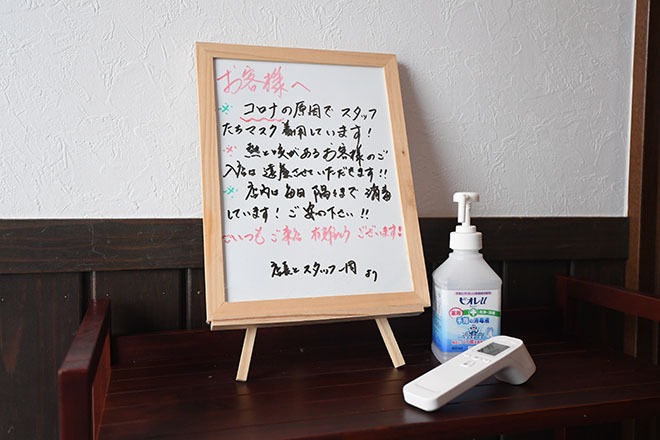 お客様へ
※ コロナの原因で スタッフ
たちマスク着用しています!
※ 熱と咳があるお客様のご
入店は遠慮させていただきます!!
※ 店内は毎日 隅々まで 消毒
しています! ご安心下さい!!
いつも ご来店 有難う ございます!
店長とスタッフ一同 より
ビオレu
手指の消毒液